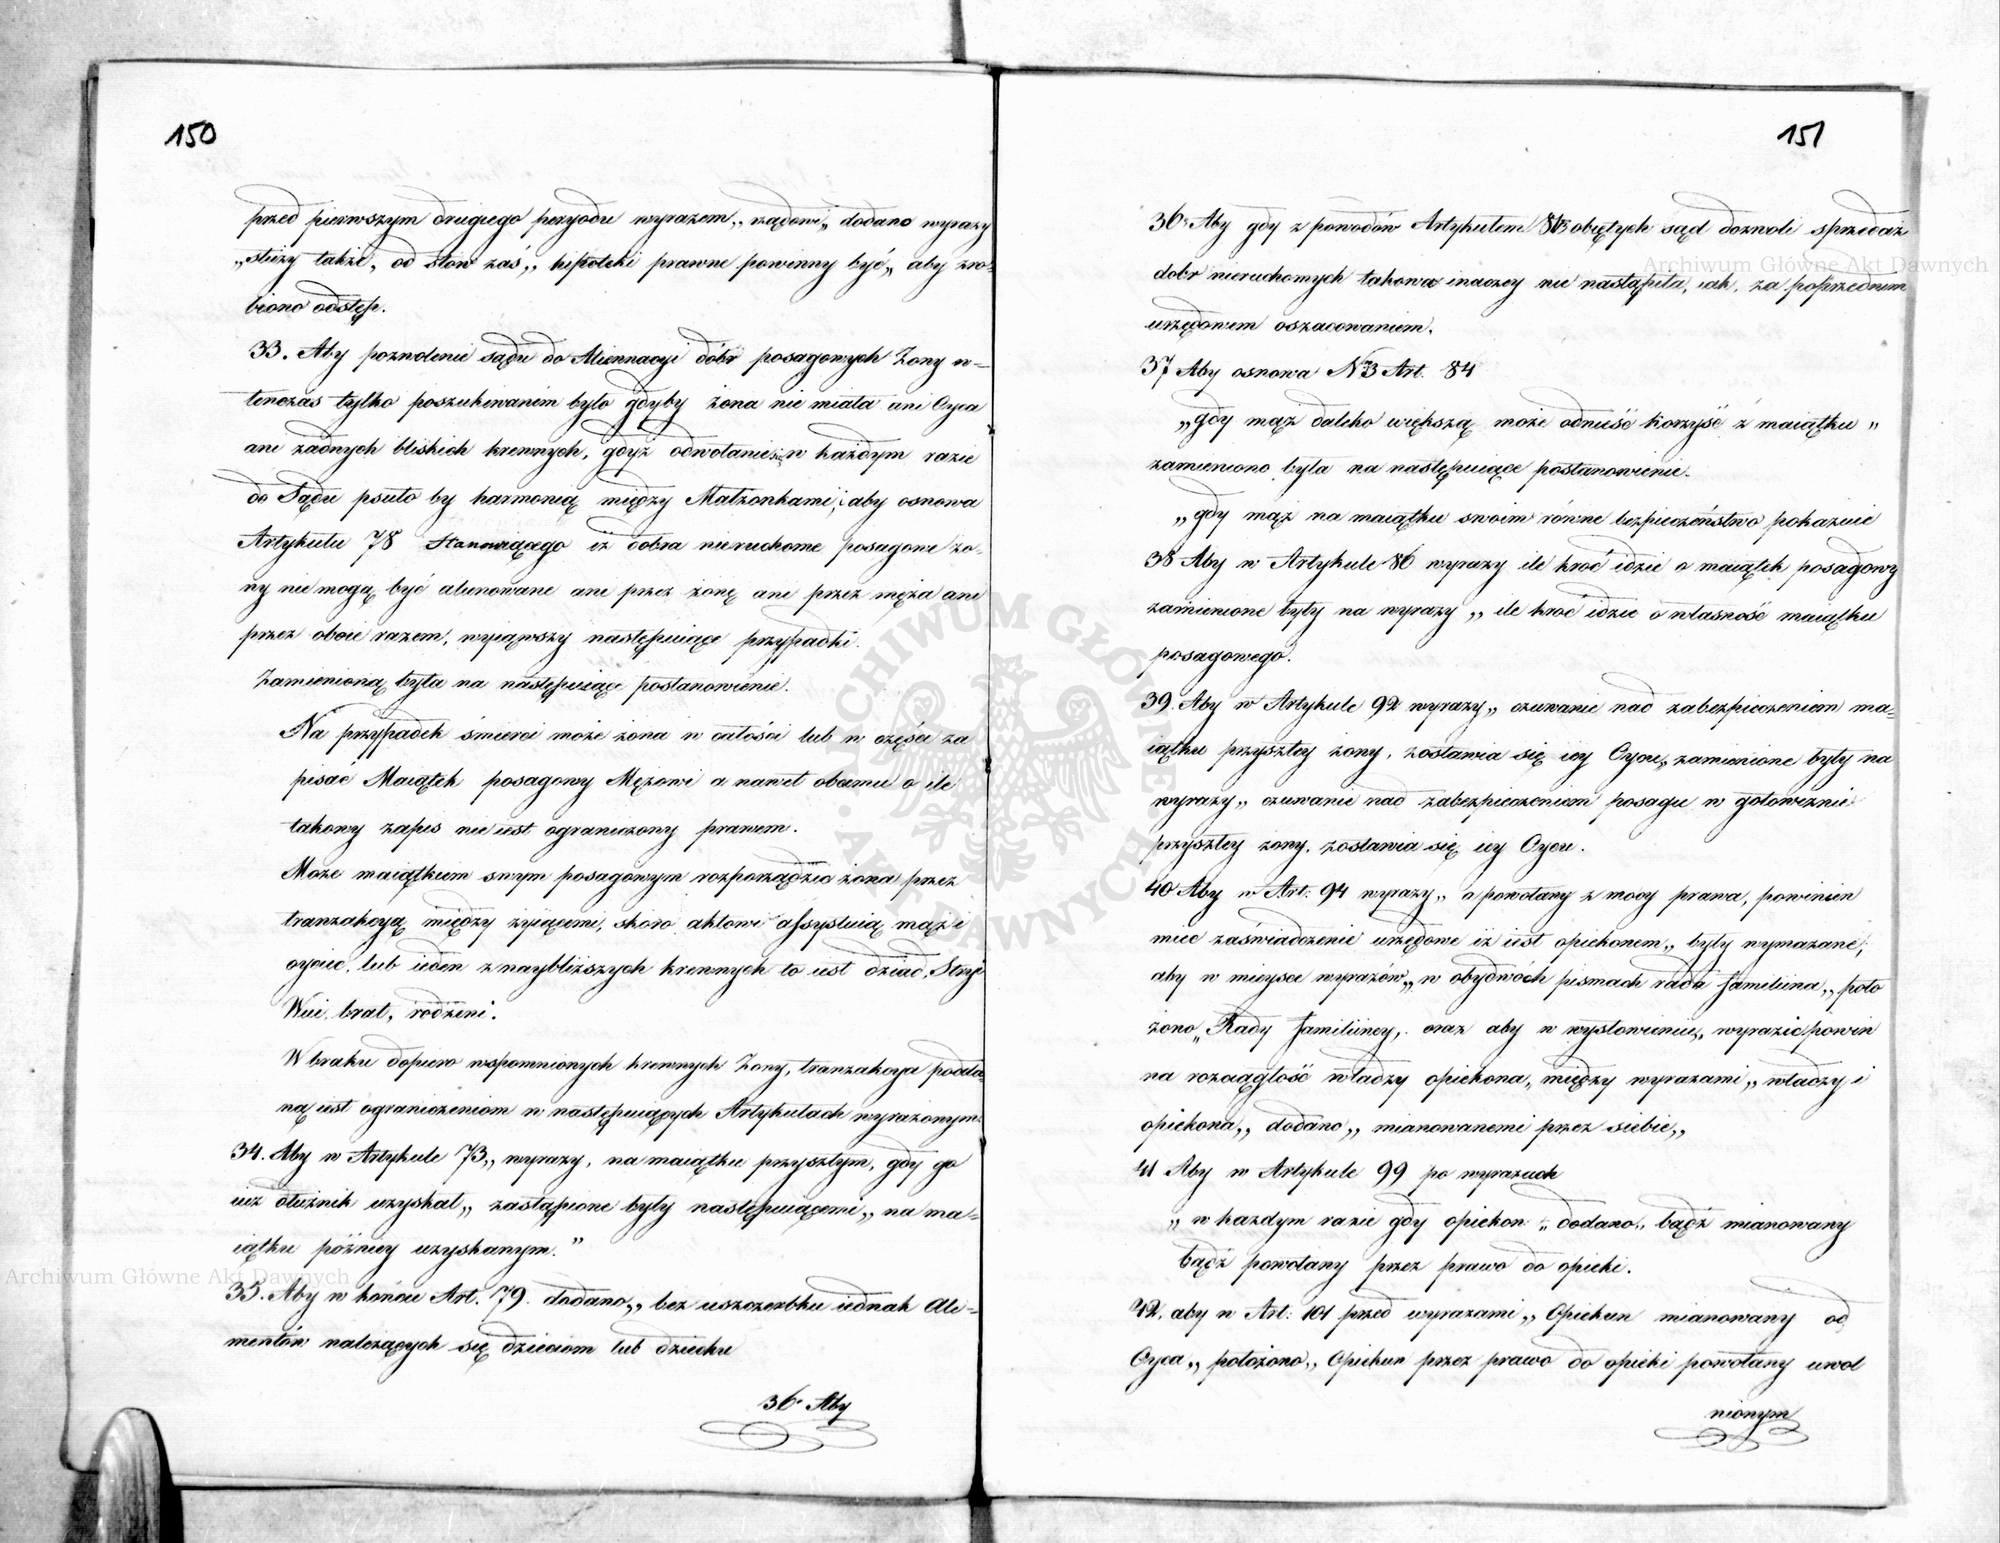 150
przed pierwszym drugiego peryodu wyrazem „rządowi„ dodano wyrazy
„służy także, od słow zaś „ hipoteki prawne powinny być„ aby zro-
biono odstęp.
33. Aby pozwolenie sądu do Aliennacyi dóbr posagowych Żony w-
tenczas tylko poszukiwanem było gdyby żona nie miała ani Oyca
ani żadnych bliskich krewnych, gdyż odwołanie się w każdym razie
do Sądu psuło by harmonią między Małżonkami; aby osnowa
Artykułu 78 Stanowiącego iż dobra nieruchome posagowe żo-
ny nie mogą być alienowane ani przez żonę ani przez męża ani
przez oboie razem, wyiąwszy następuiące przypadki.
Zamienioną była na następuiące postanowienie.
Na przypadek śmierci może żona w całości lub w części za
pisać Maiątek posagowy Mężowi a nawet obcemu o ile
takowy zapis nie iest ograniczony prawem.
Może maiątkiem swym posagowym rozporządzić żona przez
tranzakcyą między żyiącemi, skoro aktowi assystuią mąż i
oyciec, lub ieden z naybliższych krewnych to iest dziad, Stryi
Wui, brat, rodzeni.
W braku dopiero wspomnionych krewnych Żony, tranzakcya podda-
ną iest ograniczeniom w następuiących Artykułach wyrażonym.
34. Aby w Artykule 73 „ wyrazy, na maiątku przyszłym, gdy go
iuż dłużnik uzyskał„ zastąpione były następuiącemi „ na ma-
iątku późniey uzyskanym."
35. Aby w końcu Art. 79. dodano „ bez uszczerbku iednak Ali-
mentów należących się dzieciom lub dziecku
36. Aby
151
36. Aby gdy z powodów Artykułem 83 obiętych sąd dozwoli sprzedaż
dobr nieruchomych takowa inaczey nie nastąpiła, iak, za poprzedniem
urzędowem oszacowaniem.
37 Aby osnowa Nro 3 Art. 84
„gdy mąż daleko większą może odnieść korzyść z maiątku "
zamieniono była na następuiące postanowienie.
„gdy mąż na maiątku swoim równe bezpieczeństwo pokazuie
38 Aby w Artykule 86 wyrazy ile kroć idzie o maiątek posagowy
zamienione były na wyrazy „ ile kroć idzie o własność maiątku
posagowego.
39. Aby w Artykule 92 wyrazy „ czuwanie nad zabezpieczeniem ma-
iątku przyszłey żony, zostawia się iey Oycu„ zamienione były na
wyrazy „ czuwanie nad zabezpieczeniem posagu w gotowiźnie
przyszłey żony, zostawia się iey Oycu.
40 Aby w Art: 94 wyrazy „ a powołany z mocy prawa, powinien
miec zaświadczenie urzędowe iż iest opiekonem„ były wymazane;
aby w mieysce wyrazów „ w obydwóch pismach rada familiina „ poło
żono „ Rady familiiney, oraz aby w wysłowieniu „ wyrazić powin
na rozciągłość władzy opiekona, między wyrazami „ władzy i
opiekona„ dodano „ mianowanemi przez siebie„
41 Aby w Artykule 99 po wyrazach
„ w każdym razie gdy opiekon „ dodano „ bądź mianowany
bądź powołany przez prawo do opieki.
42, aby w Art: 101 przed wyrazami „ Opiekun mianowany od
Oyca „ położono „ Opiekun przez prawo do opieki powołany uwol
nionym
Archiwum Główne Akt Dawnych
Archiwum Główne Akt Dawnych
ARCHIWUM GŁÓWNE AKT DAWNYCH